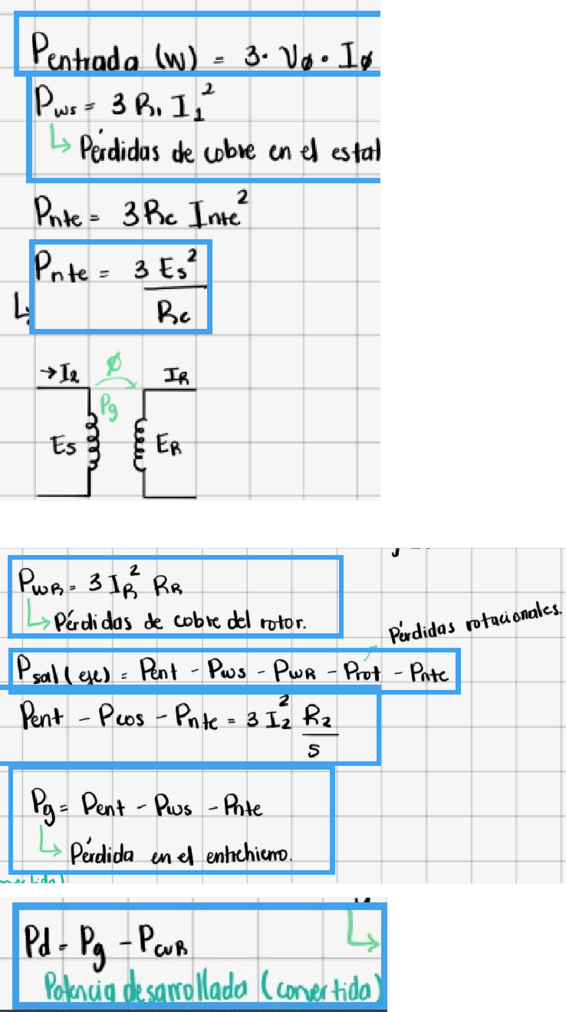 Pentrada (w) = 3· Vø· Iø
Pws = 3 R₁ I₁²
↳ Pérdidas de cobre en el estat
Pnte = 3Rc Inte²
Pnte = 3 Es² / Rc
→I₂ ø IR
Pg
Es ER
PWR = 3 IR² RR
↳ Pérdidas de cobre del rotor.
Pérdidas rotacionales.
Psal (eje) = Pent - Pws - PWR - Prot - Pnte
Pent - Pcos - Pnte = 3 I₂² R₂ / s
Pg = Pent - Pws - Pnte
↳ Pérdida en el entrehierro.
Pd = Pg - PCUR
Potencia desarrollada (convertida)